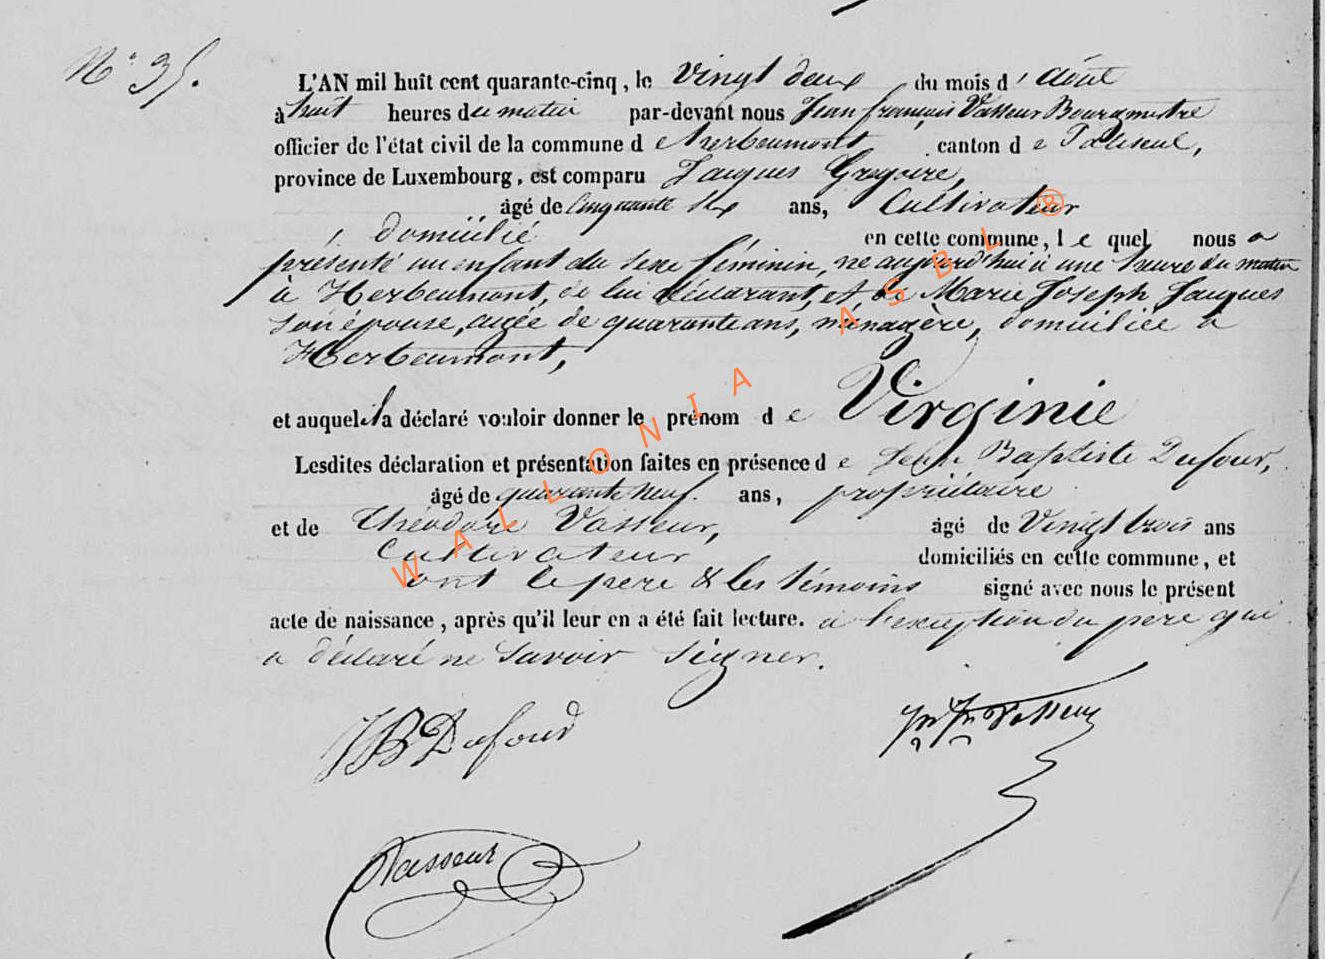 N° 35.
L'AN mil huit cent quarante-cinq, le vingt deux du mois d'août
à huit heures du matin par-devant nous Jean françois Vasseur Bourgmestre
officier de l'état civil de la commune de herbeumont, canton de Paliseul,
province de Luxembourg, est comparu Jacques Gregoire,
âgé de Cinquante six ans, Cultivateur
, domicilié en cette commune, lequel nous a
présenté un enfant du sexe féminin, né aujourd'hui à une heure du matin
à Herbeumont, de lui déclarant, et de Marie Joseph Jacques
son épouse, agée de quarante ans, ménagère, domiciliée à
Herbeumont,
et auquel il a déclaré vouloir donner le prénom de Virginie
Lesdites déclaration et présentation faites en présence de Jean Baptiste Dufour,
âgé de quarante neuf ans, propriétaire
et de Théodore Vasseur, âgé de Vingt trois ans
Cultivateur domiciliés en cette commune, et
ont le père & les témoins signé avec nous le présent
acte de naissance, après qu'il leur en a été fait lecture. à l'exception du père qui
a déclaré ne savoir signer.
JB Dufour Jn Fn Vasseur
Vasseur
WALLONIA ASBL ®